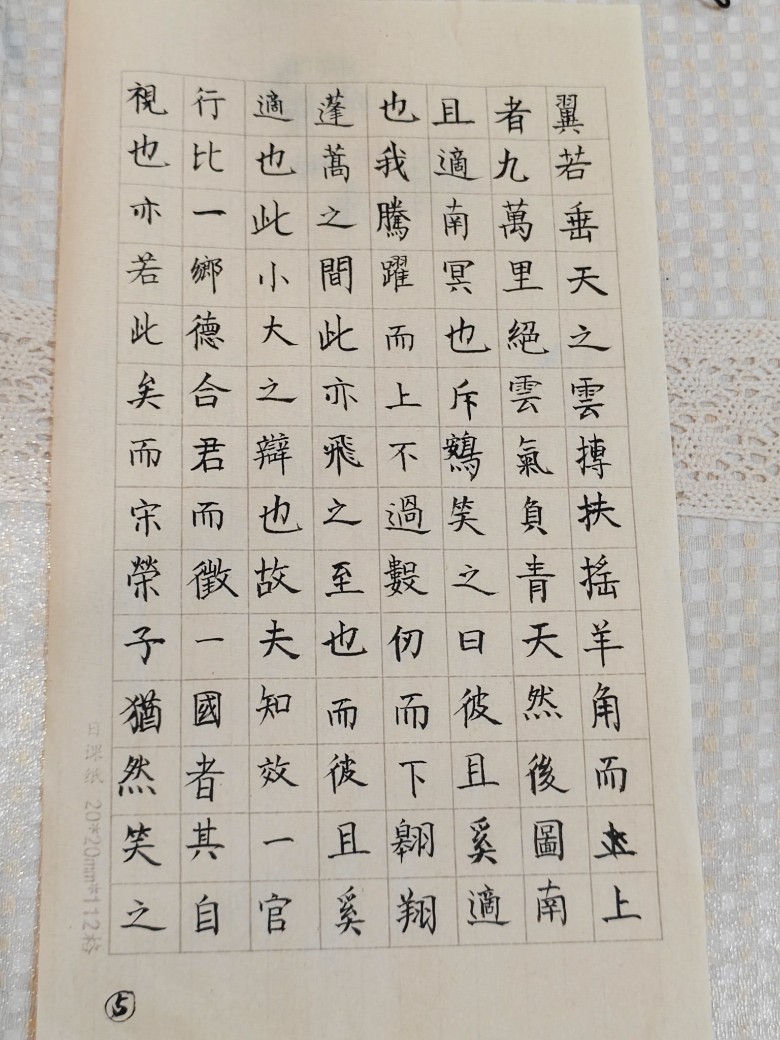 翼若垂天之雲摶扶搖羊角而上
者九萬里絕雲氣負青天然後圖南
且適南冥也斥鴳笑之曰彼且奚適
也我騰躍而上不過數仞而下翱翔
蓬蒿之間此亦飛之至也而彼且奚
適也此小大之辯也故夫知效一官
行比一鄉德合君而徵一國者其自
視也亦若此矣而宋榮子猶然笑之
日课纸 20*20mm*112格
⑤